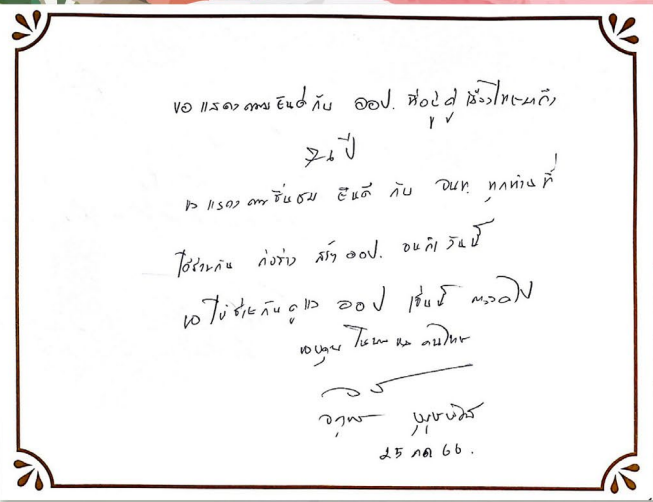 ขอแสดงความยินดีกับ ออป. ที่อยู่คู่เมืองไทยมาถึง
76 ปี
ขอแสดงความชื่นชม ยินดี กับ จนท. ทุกท่านที่
ได้ช่วยกัน ก่อร่าง สร้าง ออป. จนถึงวันนี้
ขอให้ช่วยกันดูแล ออป เช่นนี้ ตลอดไป
ขอบคุณ ในนาม ของ คนไทย
25 กค 66.